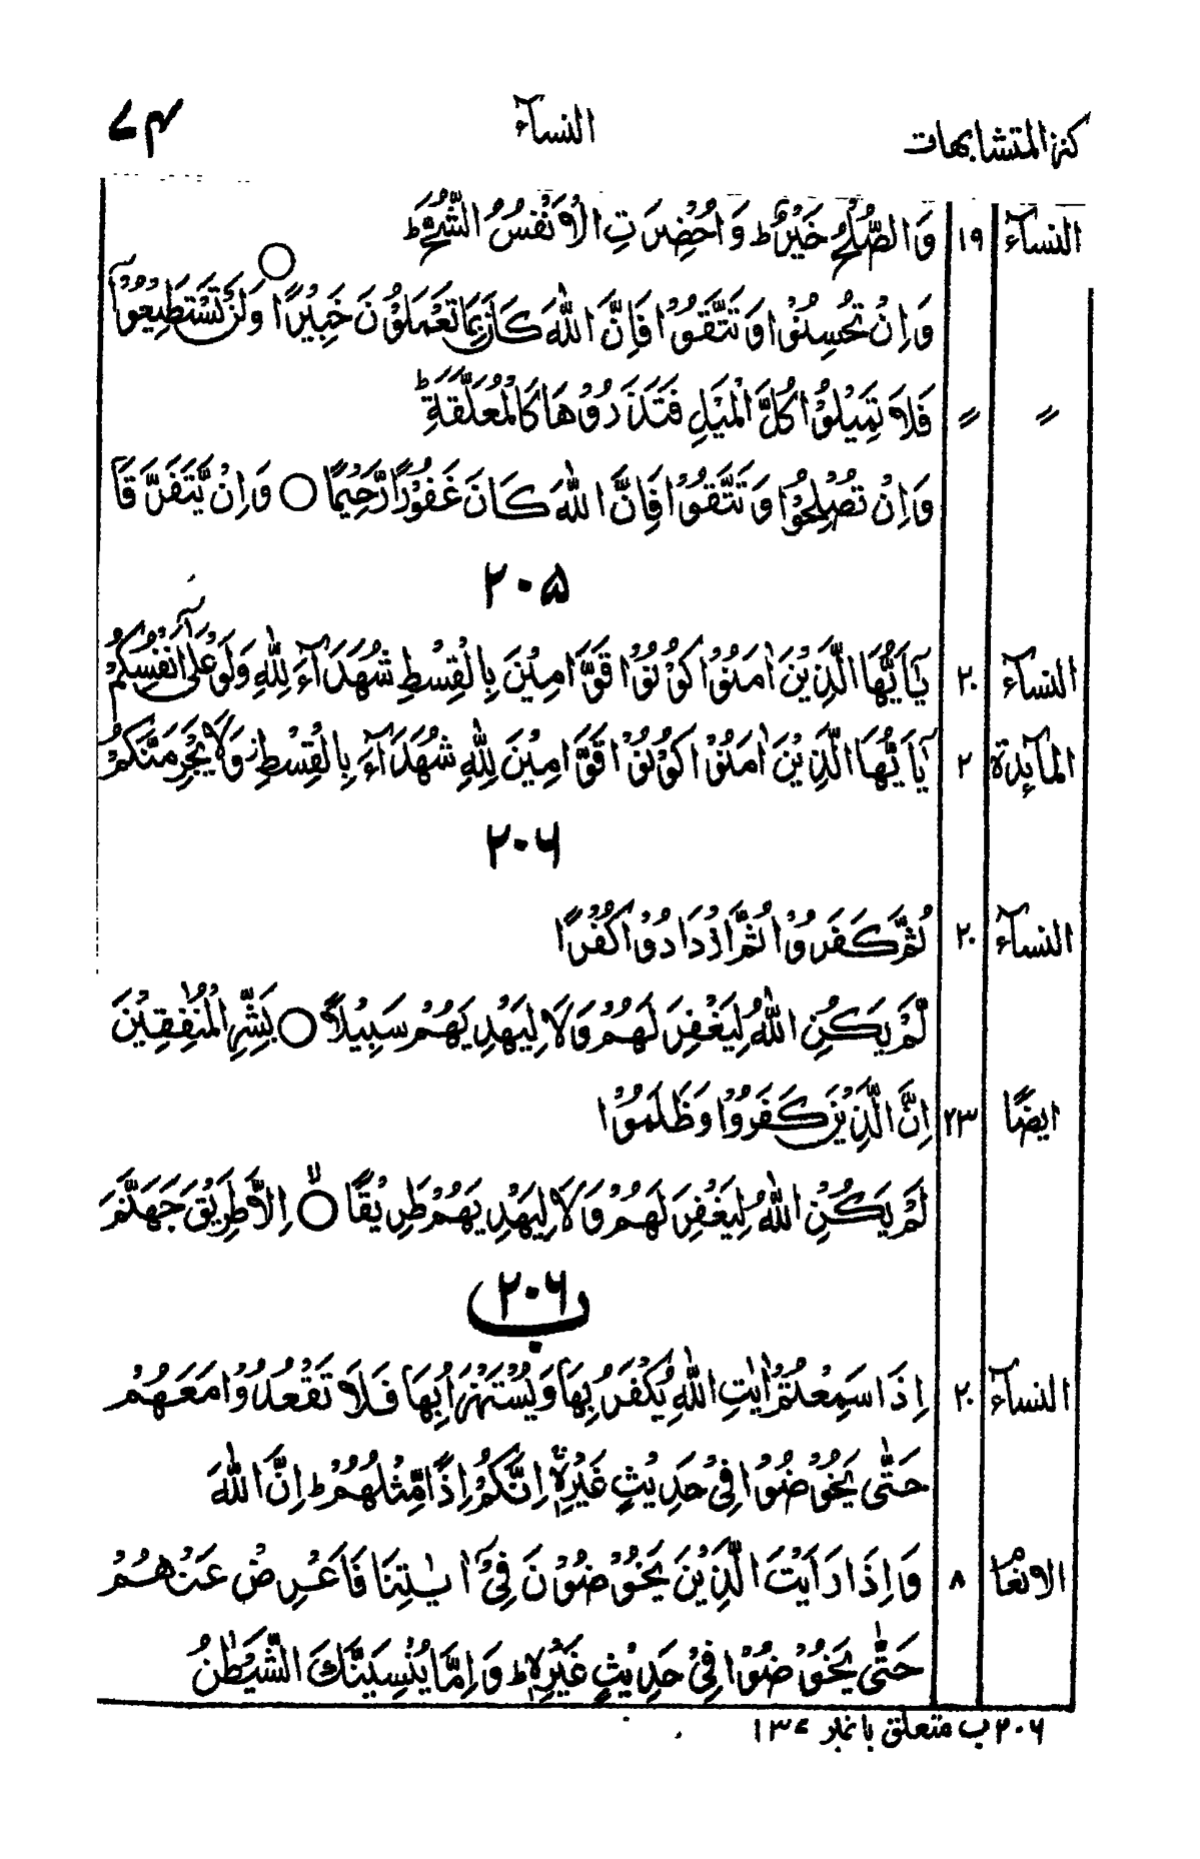 كنز المتشابهات النسآء ٧٤
النسآء ١٩ وَالصُّلْحُ خَيْرٌ ؕ وَاُحْضِرَتِ الْاَنْفُسُ الشُّحَّ ؕ
وَاِنْ تُحْسِنُوْا وَتَتَّقُوْا فَاِنَّ اللّٰهَ كَانَ بِمَا تَعْمَلُوْنَ خَبِيْرًا ○ وَلَنْ تَسْتَطِيْعُوْۤا
〃 〃 فَلَا تَمِيْلُوْا كُلَّ الْمَيْلِ فَتَذَرُوْهَا كَالْمُعَلَّقَةِ ؕ
وَاِنْ تُصْلِحُوْا وَتَتَّقُوْا فَاِنَّ اللّٰهَ كَانَ غَفُوْرًا رَّحِيْمًا ○ وَاِنْ يَّتَفَرَّقَا
۲۰۵
النسآء ۲۰ يٰۤاَيُّهَا الَّذِيْنَ اٰمَنُوْا كُوْنُوْا قَوَّامِيْنَ بِالْقِسْطِ شُهَدَآءَ لِلّٰهِ وَلَوْ عَلٰۤى اَنْفُسِكُمْ
المآئدة ۲ يٰۤاَيُّهَا الَّذِيْنَ اٰمَنُوْا كُوْنُوْا قَوَّامِيْنَ لِلّٰهِ شُهَدَآءَ بِالْقِسْطِ ز وَلَا يَجْرِمَنَّكُمْ
۲۰۶
النسآء ۲۰ ثُمَّ كَفَرُوْا ثُمَّ ازْدَادُوْا كُفْرًا
لَّمْ يَكُنِ اللّٰهُ لِيَغْفِرَ لَهُمْ وَلَا لِيَهْدِيَهُمْ سَبِيْلًا ○ بَشِّرِ الْمُنٰفِقِيْنَ
ايضًا ۲۳ اِنَّ الَّذِيْنَ كَفَرُوْا وَظَلَمُوْا
لَمْ يَكُنِ اللّٰهُ لِيَغْفِرَ لَهُمْ وَلَا لِيَهْدِيَهُمْ طَرِيْقًا ○ۙ اِلَّا طَرِيْقَ جَهَنَّمَ
۲۰۶ ب
النسآء ۲۰ اِذَا سَمِعْتُمْ اٰيٰتِ اللّٰهِ يُكْفَرُ بِهَا وَيُسْتَهْزَاُ بِهَا فَلَا تَقْعُدُوْا مَعَهُمْ
حَتّٰى يَخُوْضُوْا فِيْ حَدِيْثٍ غَيْرِهٖۤ اِنَّكُمْ اِذًا مِّثْلُهُمْ ؕ اِنَّ اللّٰهَ
الانعام ۸ وَاِذَا رَاَيْتَ الَّذِيْنَ يَخُوْضُوْنَ فِيْۤ اٰيٰتِنَا فَاَعْرِضْ عَنْهُمْ
حَتّٰى يَخُوْضُوْا فِيْ حَدِيْثٍ غَيْرِهٖ ؕ وَاِمَّا يُنْسِيَنَّكَ الشَّيْطٰنُ
۲۰۶ب متعلق با نمبر ۱۳۷